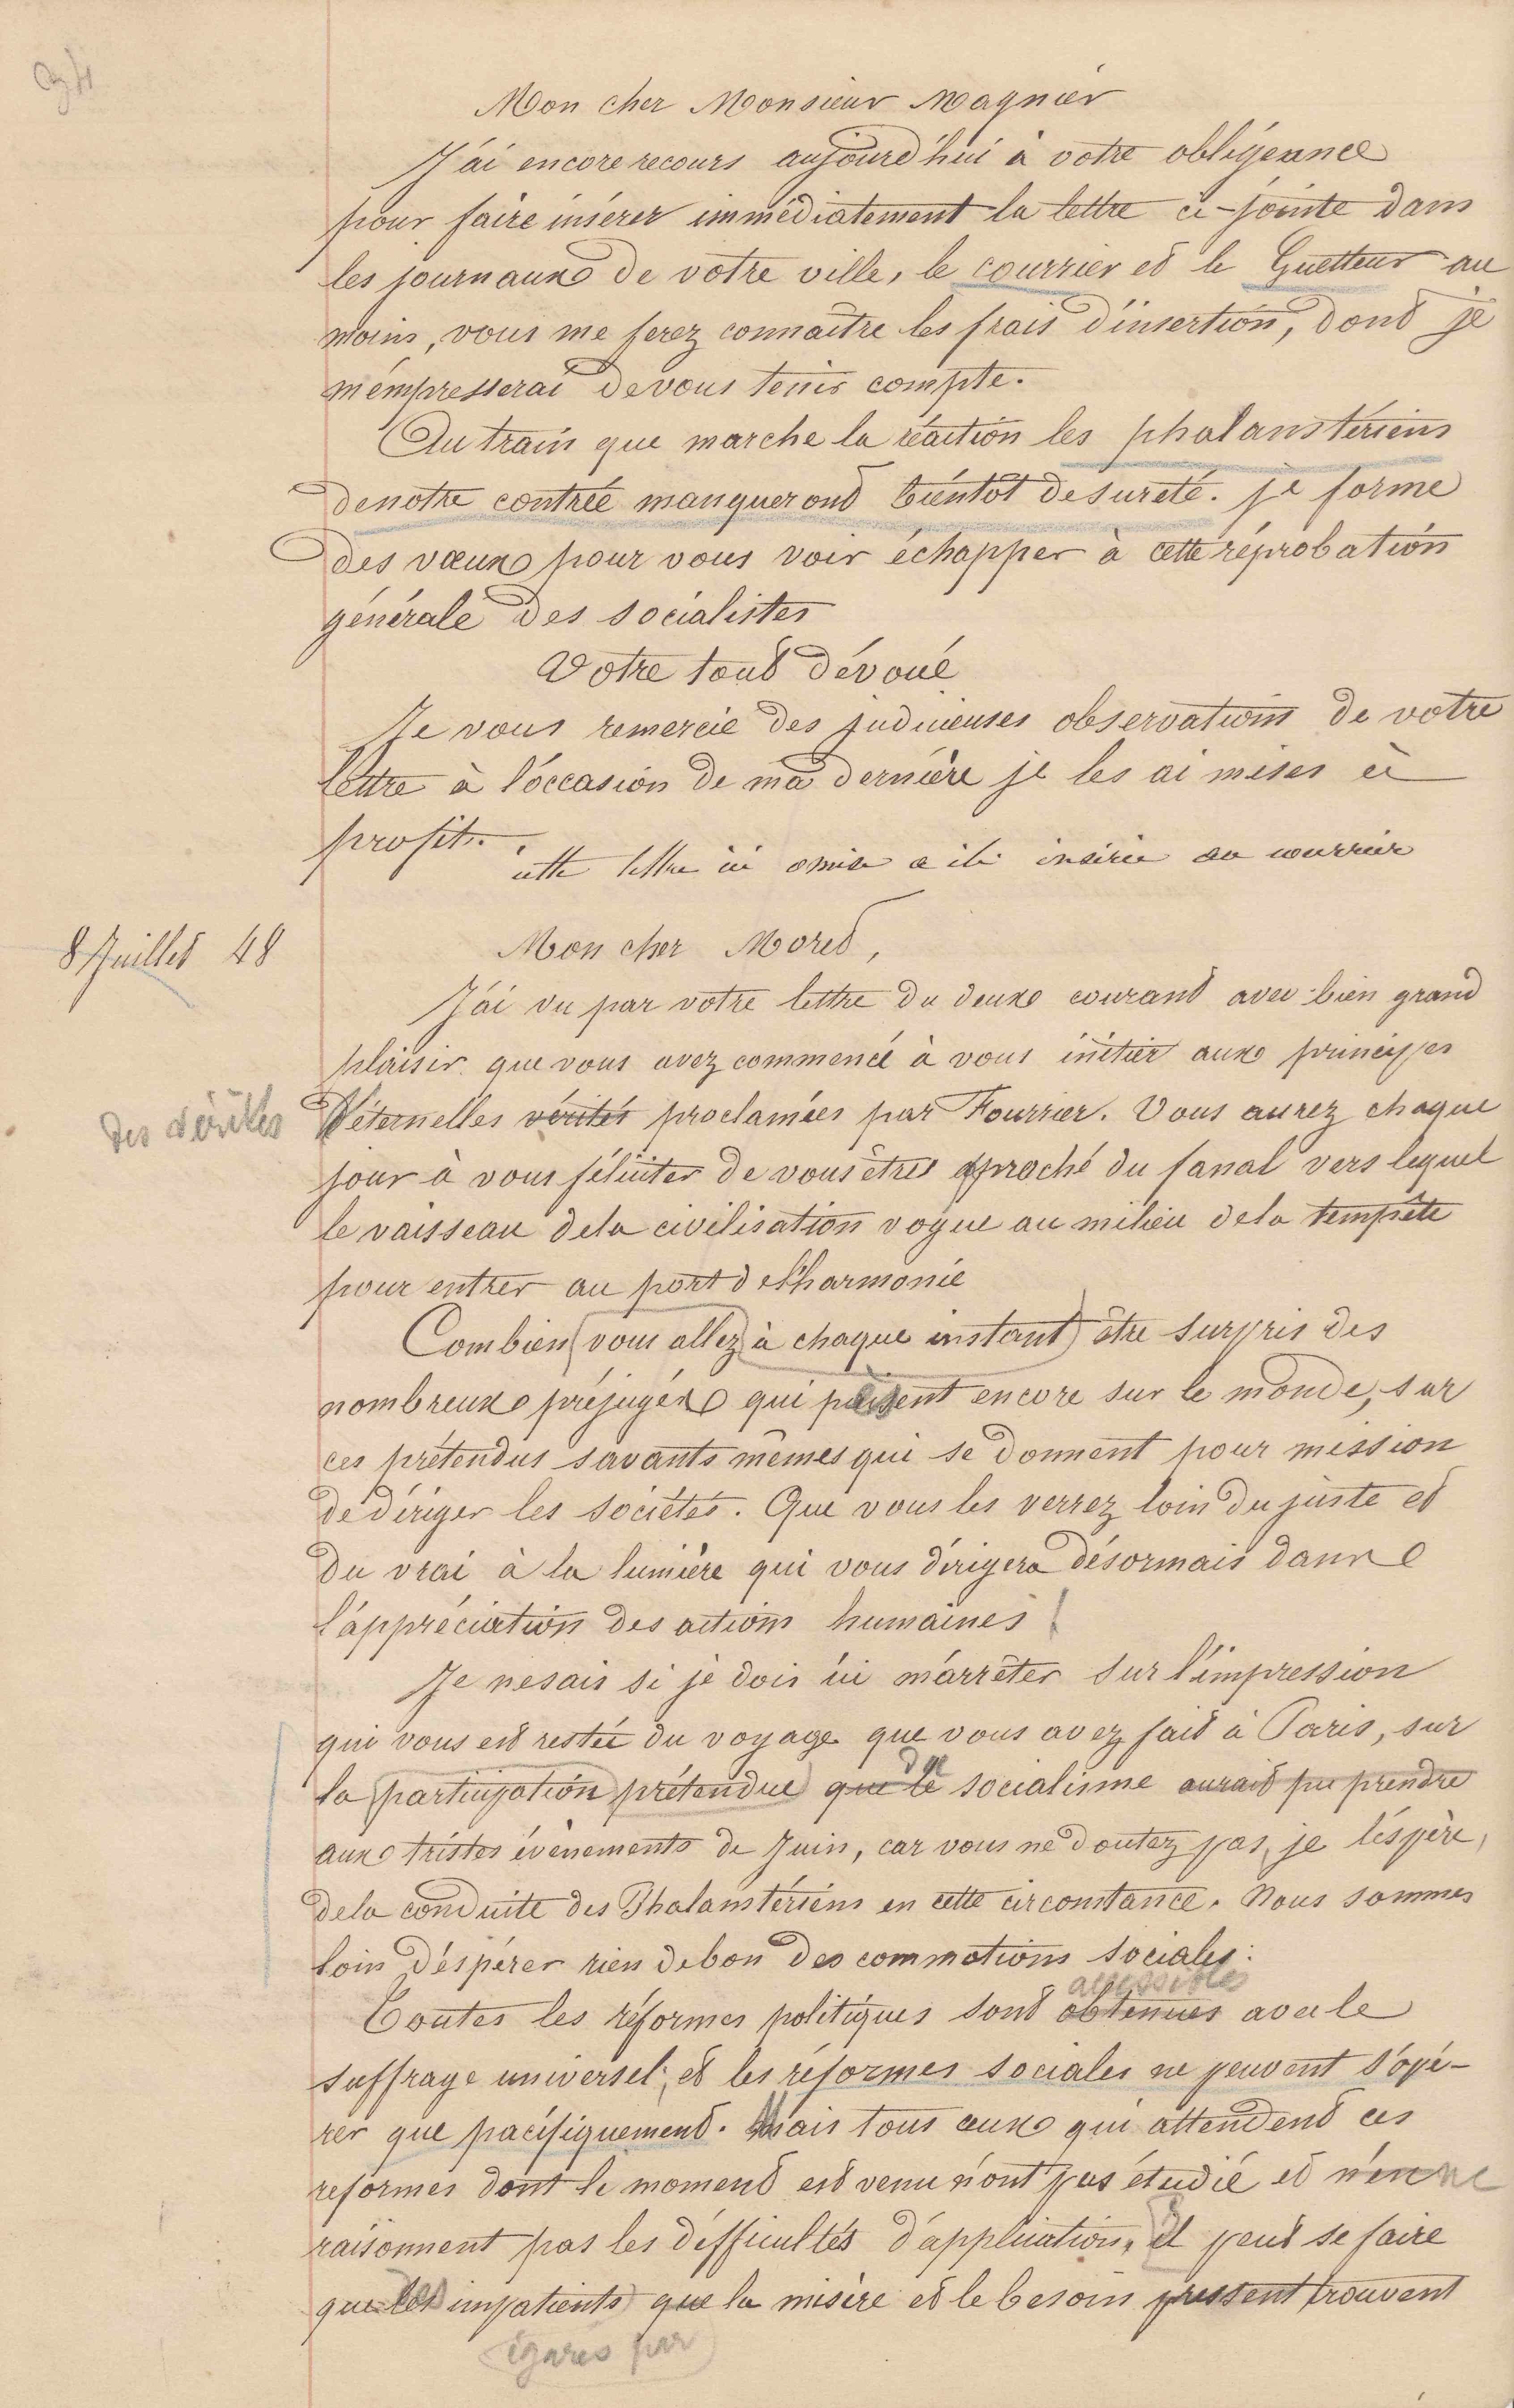 Mon cher Monsieur Magnier
J'ai encore recours aujourd'hui à votre obligeance
pour faire insérer immédiatement la lettre ci-jointe dans
les journaux de votre ville, le courrier et le Guetteur au
moins, vous me ferez connaître les frais d'insertion, dont je
m'empresserai de vous tenir compte.
Au train que marche la réaction les phalanstériens
de notre contrée manqueront bientôt de sureté. je forme
des vœux pour vous voir échapper à cette réprobation
générale des socialistes
Votre tout dévoué
Je vous remercie des judicieuses observations de votre
lettre à l'occasion de ma dernière je les ai mises à
profit.
cette lettre ici omise a été insérée au courrier
8 Juillet 48
Mon cher Moret,
J'ai vu par votre lettre du deux courant avec bien grand
plaisir que vous avez commencé à vous initier aux principes
des vérités
d'éternelles vérités proclamées par Fourrier. Vous aurez chaque
jour à vous féliciter de vous être approché du fanal vers lequel
le vaisseau de la civilisation vogue au milieu de la tempête
pour entrer au port de l'harmonie
Combien vous allez à chaque instant être surpris des
nombreux préjugés qui pèsent encore sur le monde, sur
ces prétendus savants mêmes qui se donnent pour mission
de diriger les sociétés. Que vous les verrez loin du juste et
du vrai à la lumière qui vous dirigera désormais dans
l'appréciation des actions humaines !
Je ne sais si je dois ici m'arrêter sur l'impression
qui vous est restée du voyage que vous avez fait à Paris, sur
du
la participation prétendue que le socialisme aurait pu prendre
aux tristes évènements de Juin, car vous ne doutez pas, je l'espère,
de la conduite des Phalanstériens en cette circonstance. Nous sommes
loin d'espérer rien de bon des commotions sociales.
accessibles
Toutes les réformes politiques sont obtenues avec le
suffrage universel; et les réformes sociales ne peuvent s'opé-
rer que pacifiquement. Mais tous ceux qui attendent ces
reformes dont le moment est venu n'ont pas étudié et n'en ne
raisonnent pas les difficultés d'application, il peut se faire
que les impatients que la misère et le besoin pressent trouvent
égarés par